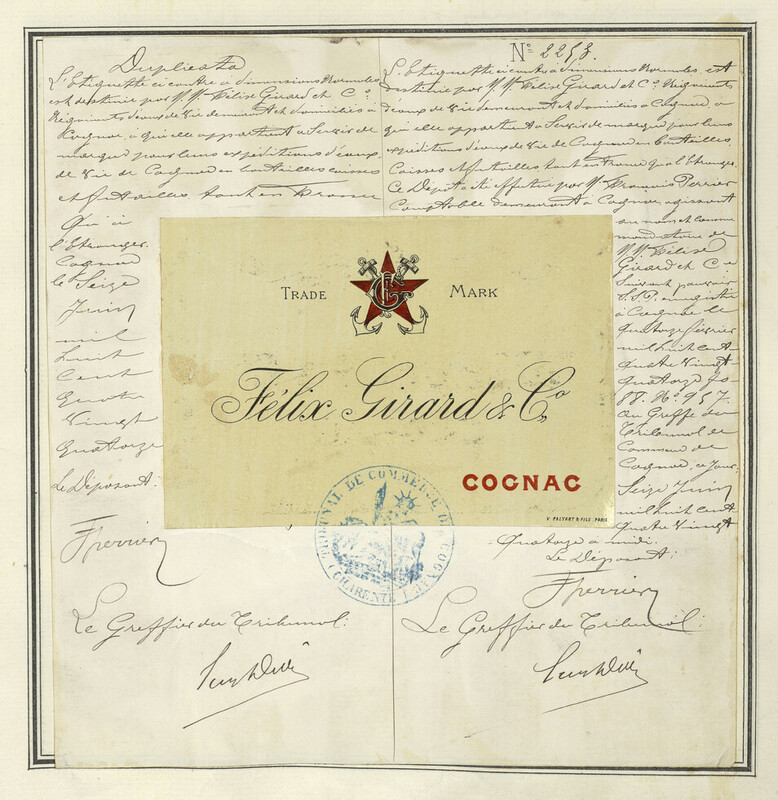 Duplicata
L'Etiquette ci contre à dimensions Normales
est destinée par M.M. Félix Girard et Co.
Négociants d'eaux de Vie demeurant et domiciliés à
Cognac, à qui elle appartient à Servir de
marque pour leurs expéditions d'eaux
de Vie de Cognac en bouteilles caisses
et futailles tant en France
Qu'à
l'Etranger.
Cognac
le Seize
Juin
mil
huit
Cent
Quatre
Vingt
Quatorze
Le Déposant:
Fperrier
Le Greffier du Tribunal:
No 2253.
L'Etiquette ci contre à dimensions Normales, est
destinée par MM Félix Girard et Co Négociants
d'eaux de Vie demeurant et domiciliés à Cognac, à
qui elle appartient à Servir de marque pour leurs
expéditions d'eaux de Vie de Cognac en bouteilles,
Caisses et futailles tant en France qu'à l'Etranger.
Ce Dépôt a été effectué par M. Francois Perrier
Comptable demeurant à Cognac, agissant
au nom et comme
mandataire de
MM. Félix
Girard et Co
Suivant pouvoir
S.S.P. enregistré
à Cognac le
Quatorze février
mil huit cent
Quatre Vingt
Quatorze fo
88. No 957.
au Greffe du
Tribunal de
Commerce de
Cognac, ce Jour
Seize Juin
mil huit cent
Quatre Vingt
Quatorze à midi.
Le Déposant:
Fperrier
Le Greffier du Tribunal:
TRADE MARK
FG
Félix Girard & Co
COGNAC
V. PALYART & FILS. PARIS
TRIBUNAL DE COMMERCE DE COGNAC
(CHARENTE)